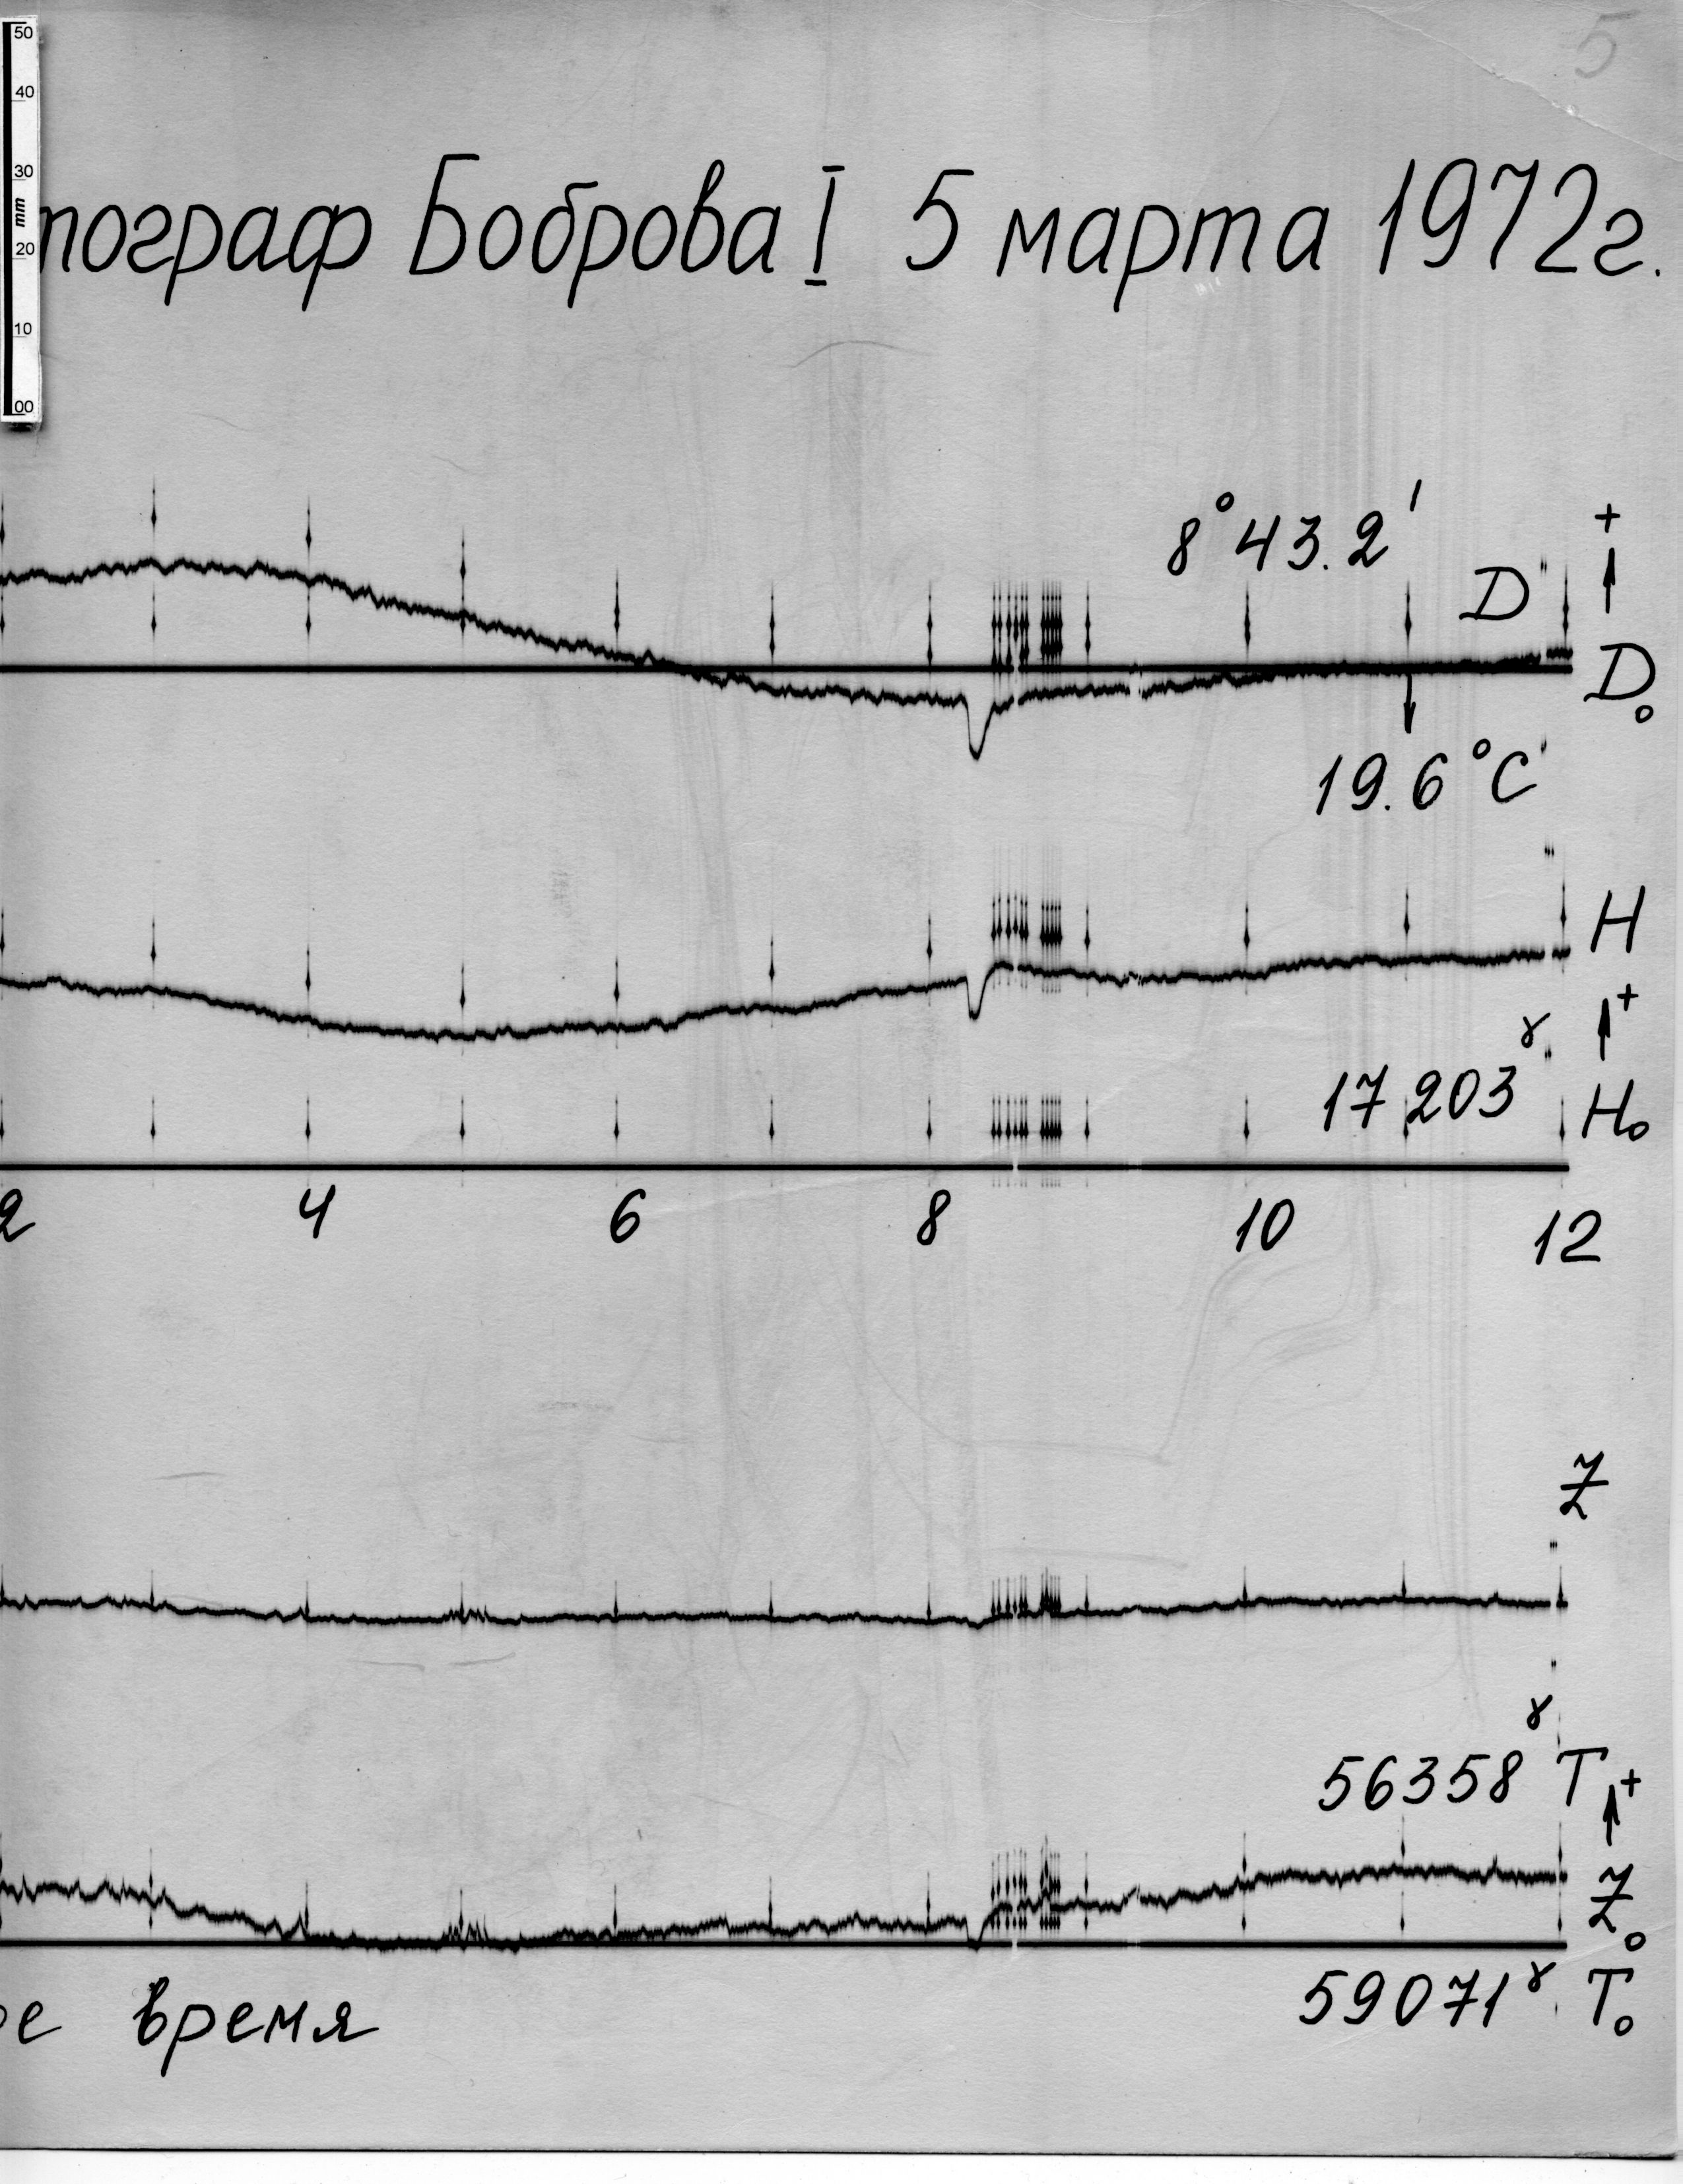 50
40
30
mm
20
10
00
5
тограф Боброва I 5 марта 1972г.
8°43.2'
+
D
D₀
19.6°C
H
+
17203γ
H₀
2 4 6 8 10 12
Z
56358γ T
+
Z₀
59071γ T₀
ое время